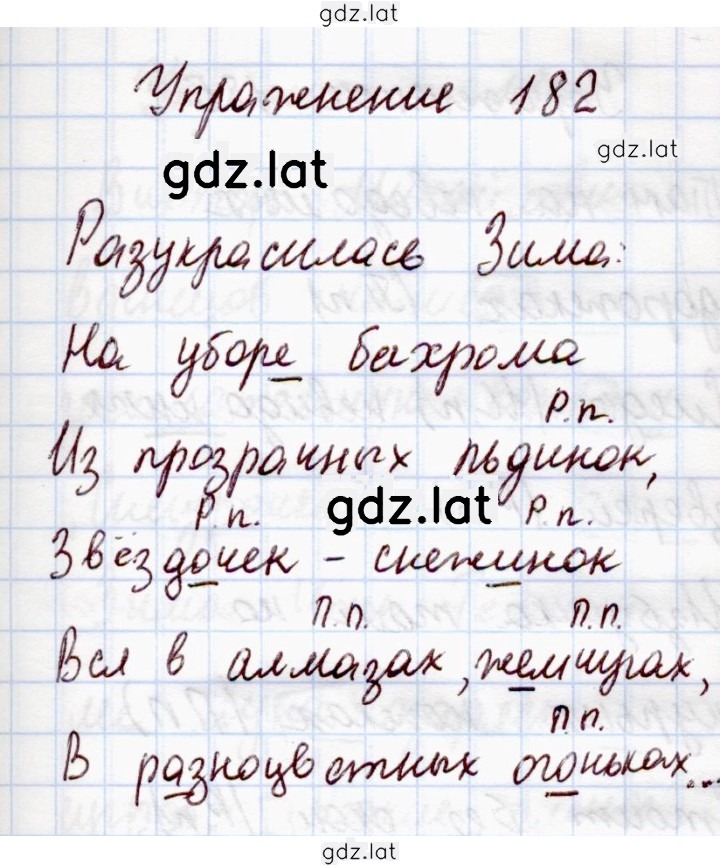 gdz.lat
Упражнение 182
gdz.lat
gdz.lat
Разукрасилась Зима:
На уборе бахрома
Р.п.
Из прозрачных льдинок,
gdz.lat
Р.п. Р.п.
Звёздочек - снежинок
П.п. П.п.
Вся в алмазах, жемчугах,
П.п.
В разноцветных огоньках...
gdz.lat